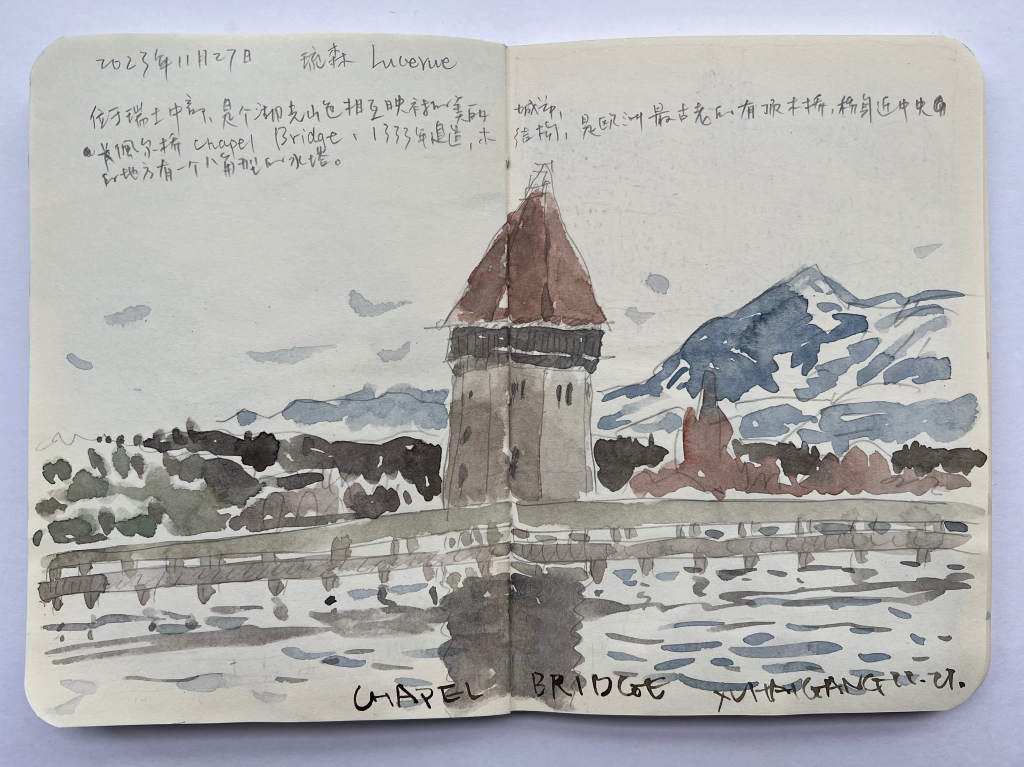 2023年11月27日 琉森 Lucerne
位于瑞士中部，是个湖光山色相互映衬的美丽城市，
卡佩尔桥 Chapel Bridge，1333年建造，木结构，是欧洲最古老的有顶木桥，桥身近中央
的地方有一个八角型的水塔。
CHAPEL BRIDGE XUHAIGANG